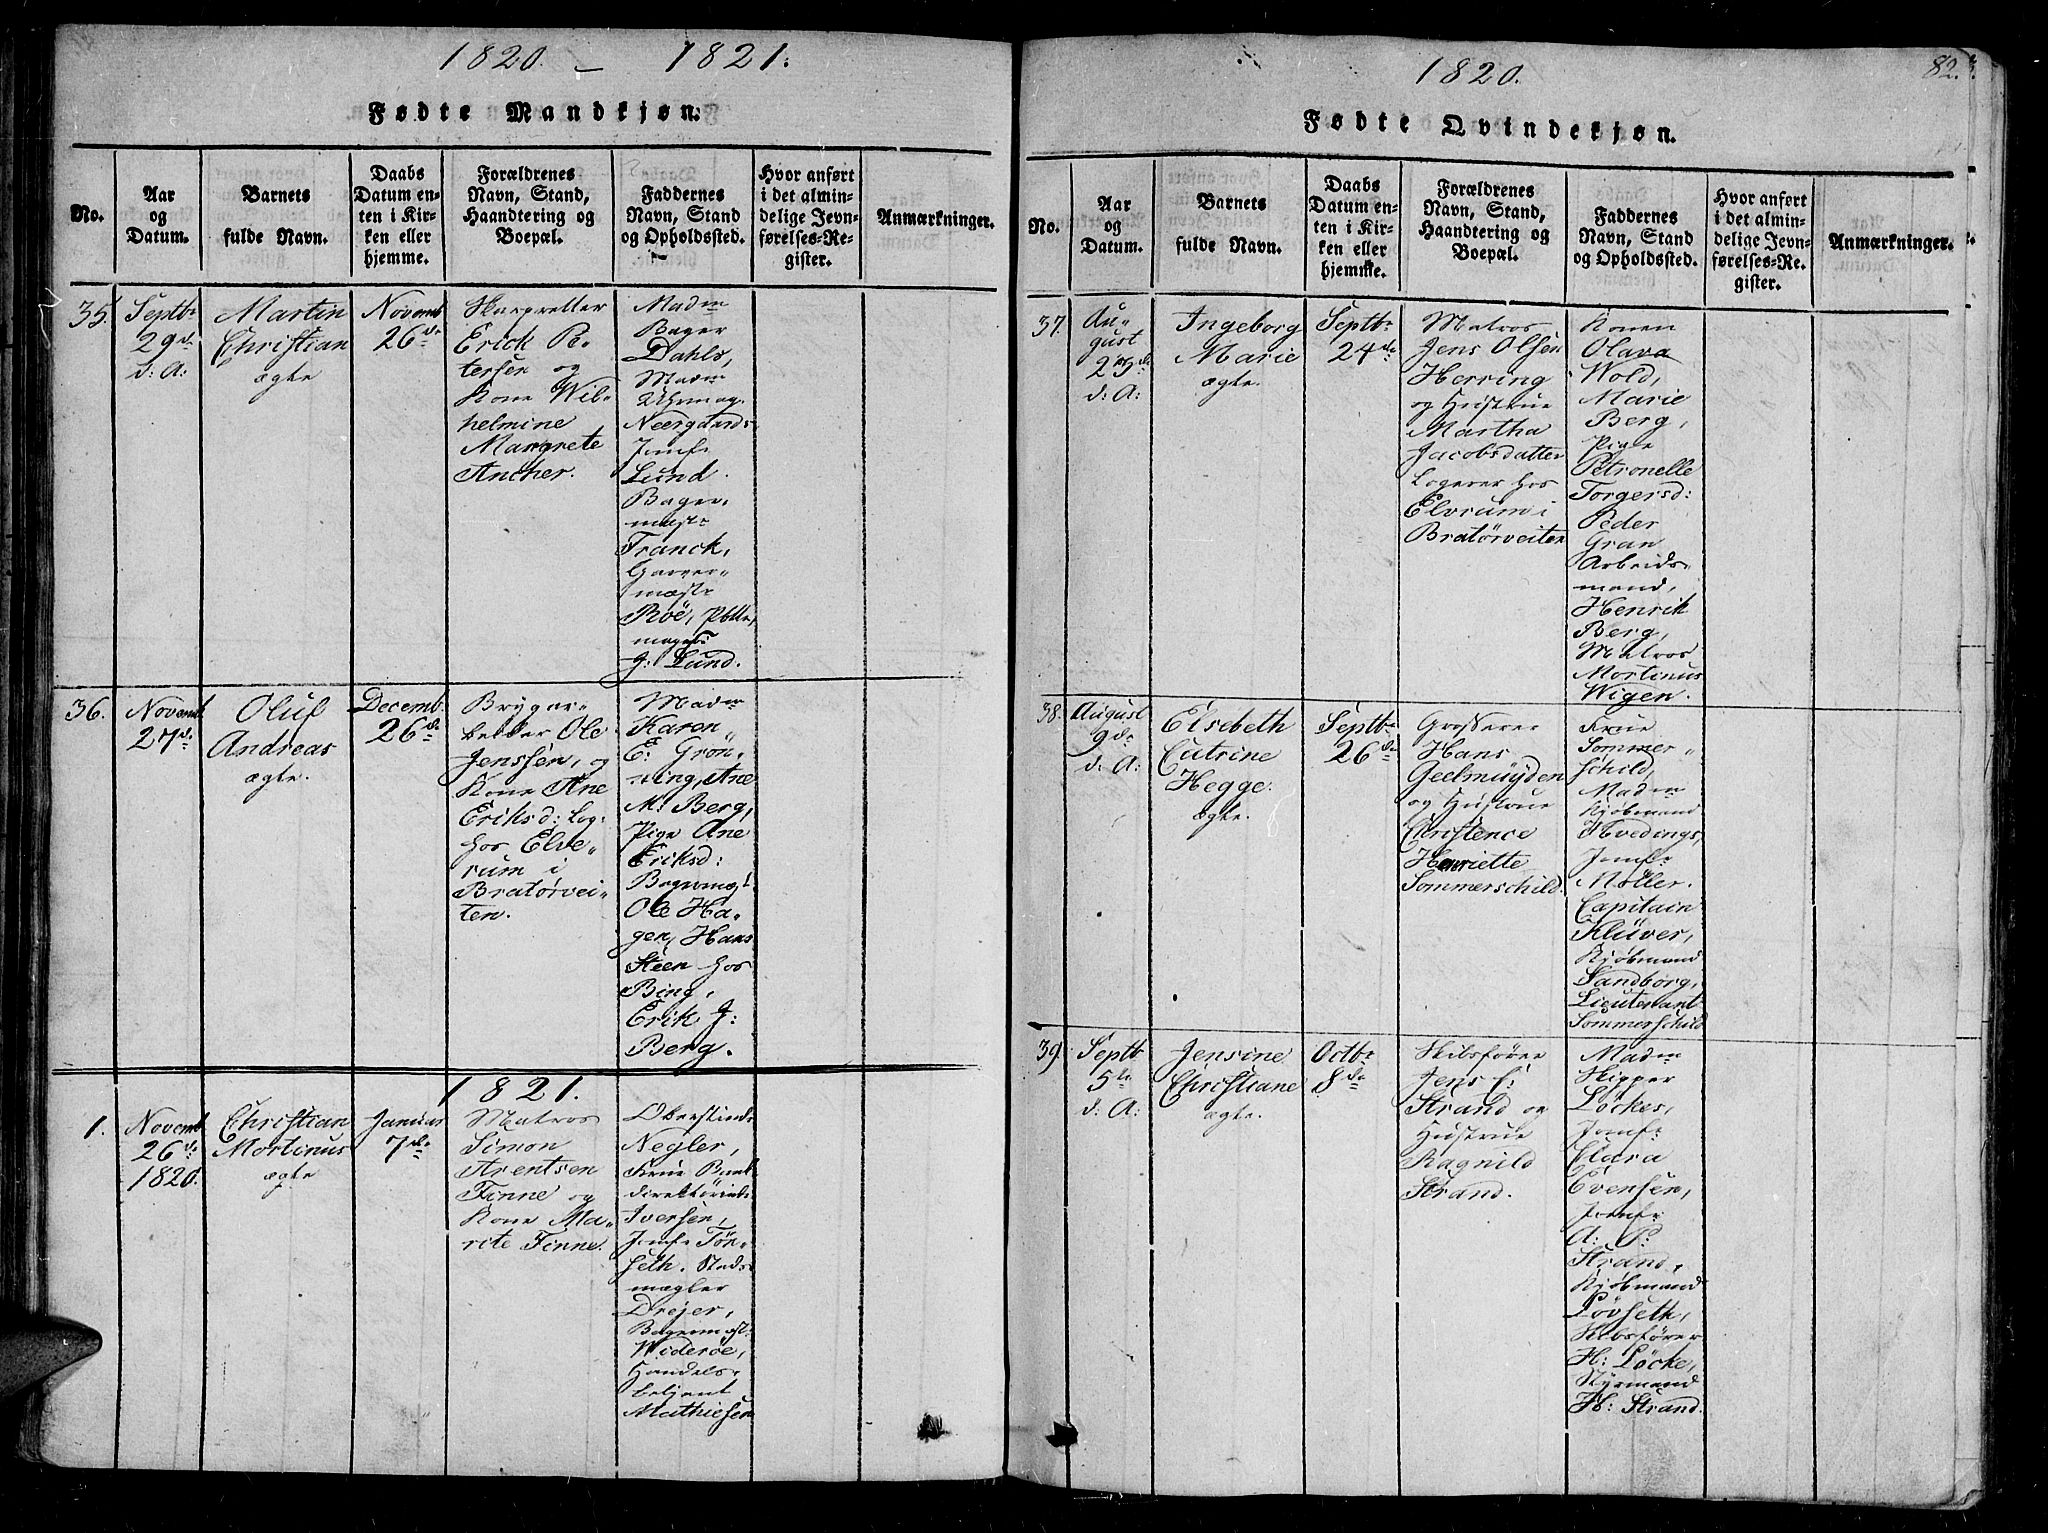 1820. – 1821.
Fødte Mandkjøn.
No.
Aar
og
Datum.
Barnets
fulde Navn.
Daabs
Datum en-
ten i Kir-
ken eller
hjemme.
Forældrenes
Navn, Stand,
Haandtering og
Boepæl.
Faddernes
Navn, Stand
og Opholdssted.
Hvor anført
i det almin-
delige Jevn-
førelses-Re-
gister.
Anmærkninger.
35.
Septbr
29de
d: A:
Martin
Christian
ægte
Novemb
26de
Skarpretter
Erick Pe-
tersen og
Kone Wil-
helmine
Margrete
Ancher.
Madm
Bager
Dahls,
Madm
Uhrmag.
Neergaard.
Jomfr
Lund.
Bager-
mestr
Franck,
Garver-
mæstr
Röe,
mager
J: Lund.
36.
Novemb
27de
Oluf
Andreas
ægte.
Decemb
26de
Brygger-
Ole
Jenssen, og
Kone Ane
Eriksd: Log:
hos Elve-
rum i
Bratörvei-
ten.
Madm
Karen
E: Grön-
ning, Ane
M: Berg,
Pige Ane
Eriksd:
Ole Ha-
gen, Hans
Steen hos
Bing,
Erik J:
Berg.
1821.
1.
Novemb
26de
1820.
Christian
Mortinus
ægte
Januar
7de
Matros
Simon
Arentsen
Finne og
Kone Ma-
rite Finne.
Negler,
Frue
direktörinde
Iversen,
Jomfr Tön-
seth. Stads-
mægler
Drejer,
Bagerm
Wideröe,
Handels-
betjent
Mathiesen
1820.
82.
Fødte Qvindekjøn.
No.
Aar
og
Datum.
Barnets
fulde Navn.
Daabs
Datum en-
ten i Kir-
ken eller
hjemme.
Forældrenes
Navn, Stand,
Haandtering og
Boepæl.
Faddernes
Navn, Stand
og Opholdssted.
Hvor anført
i det almin-
delige Jevn-
førelses-Re-
gister.
Anmærkninger.
37.
Au-
gust
d: A:
Ingeborg
Marie
ægte.
Septbr
24de
Matros
Jens Olsen
Herring
og Hustrue
Martha
Jacobsdatter
Logerer hos
Elvrum i
Bratörveiten
Konen
Olava
Wold,
Marie
Berg,
Pige
Petronelle
Torgersd:
Peder
Gran
Arbeids-
mand,
Henrik
Berg,
Matros
Mortinus
Wigen.
38.
August
9de
d: A:
Elsebeth
Catrine
Hegge.
ægte.
Septbr
26de
Grosserer
Hans
Geelmuyden
og Hustrue
Christence
Henriette
Sommerschild.
Frue
Sommer-
schild,
Madm
Kjöbmand
Hvedings,
Jomfr
Möller.
Capitain
Klüver,
Kjöbmand
Sandborg,
Lieutenant
Sommerschild
39.
Septb
5te
d: A:
Jensine
Christiane
ægte.
Octbr
8de
Skibsförer
Jens C:
Strand og
Hustrue
Ragnild
Strand.
Madm
Skipper
Löckes,
Jomfr
Clara
Evensen,
Jomfr
A: P:
Strand,
Kjöbmand
Lövseth,
Skibsförer
H: Löcke,
Styrmand
H: Strand.